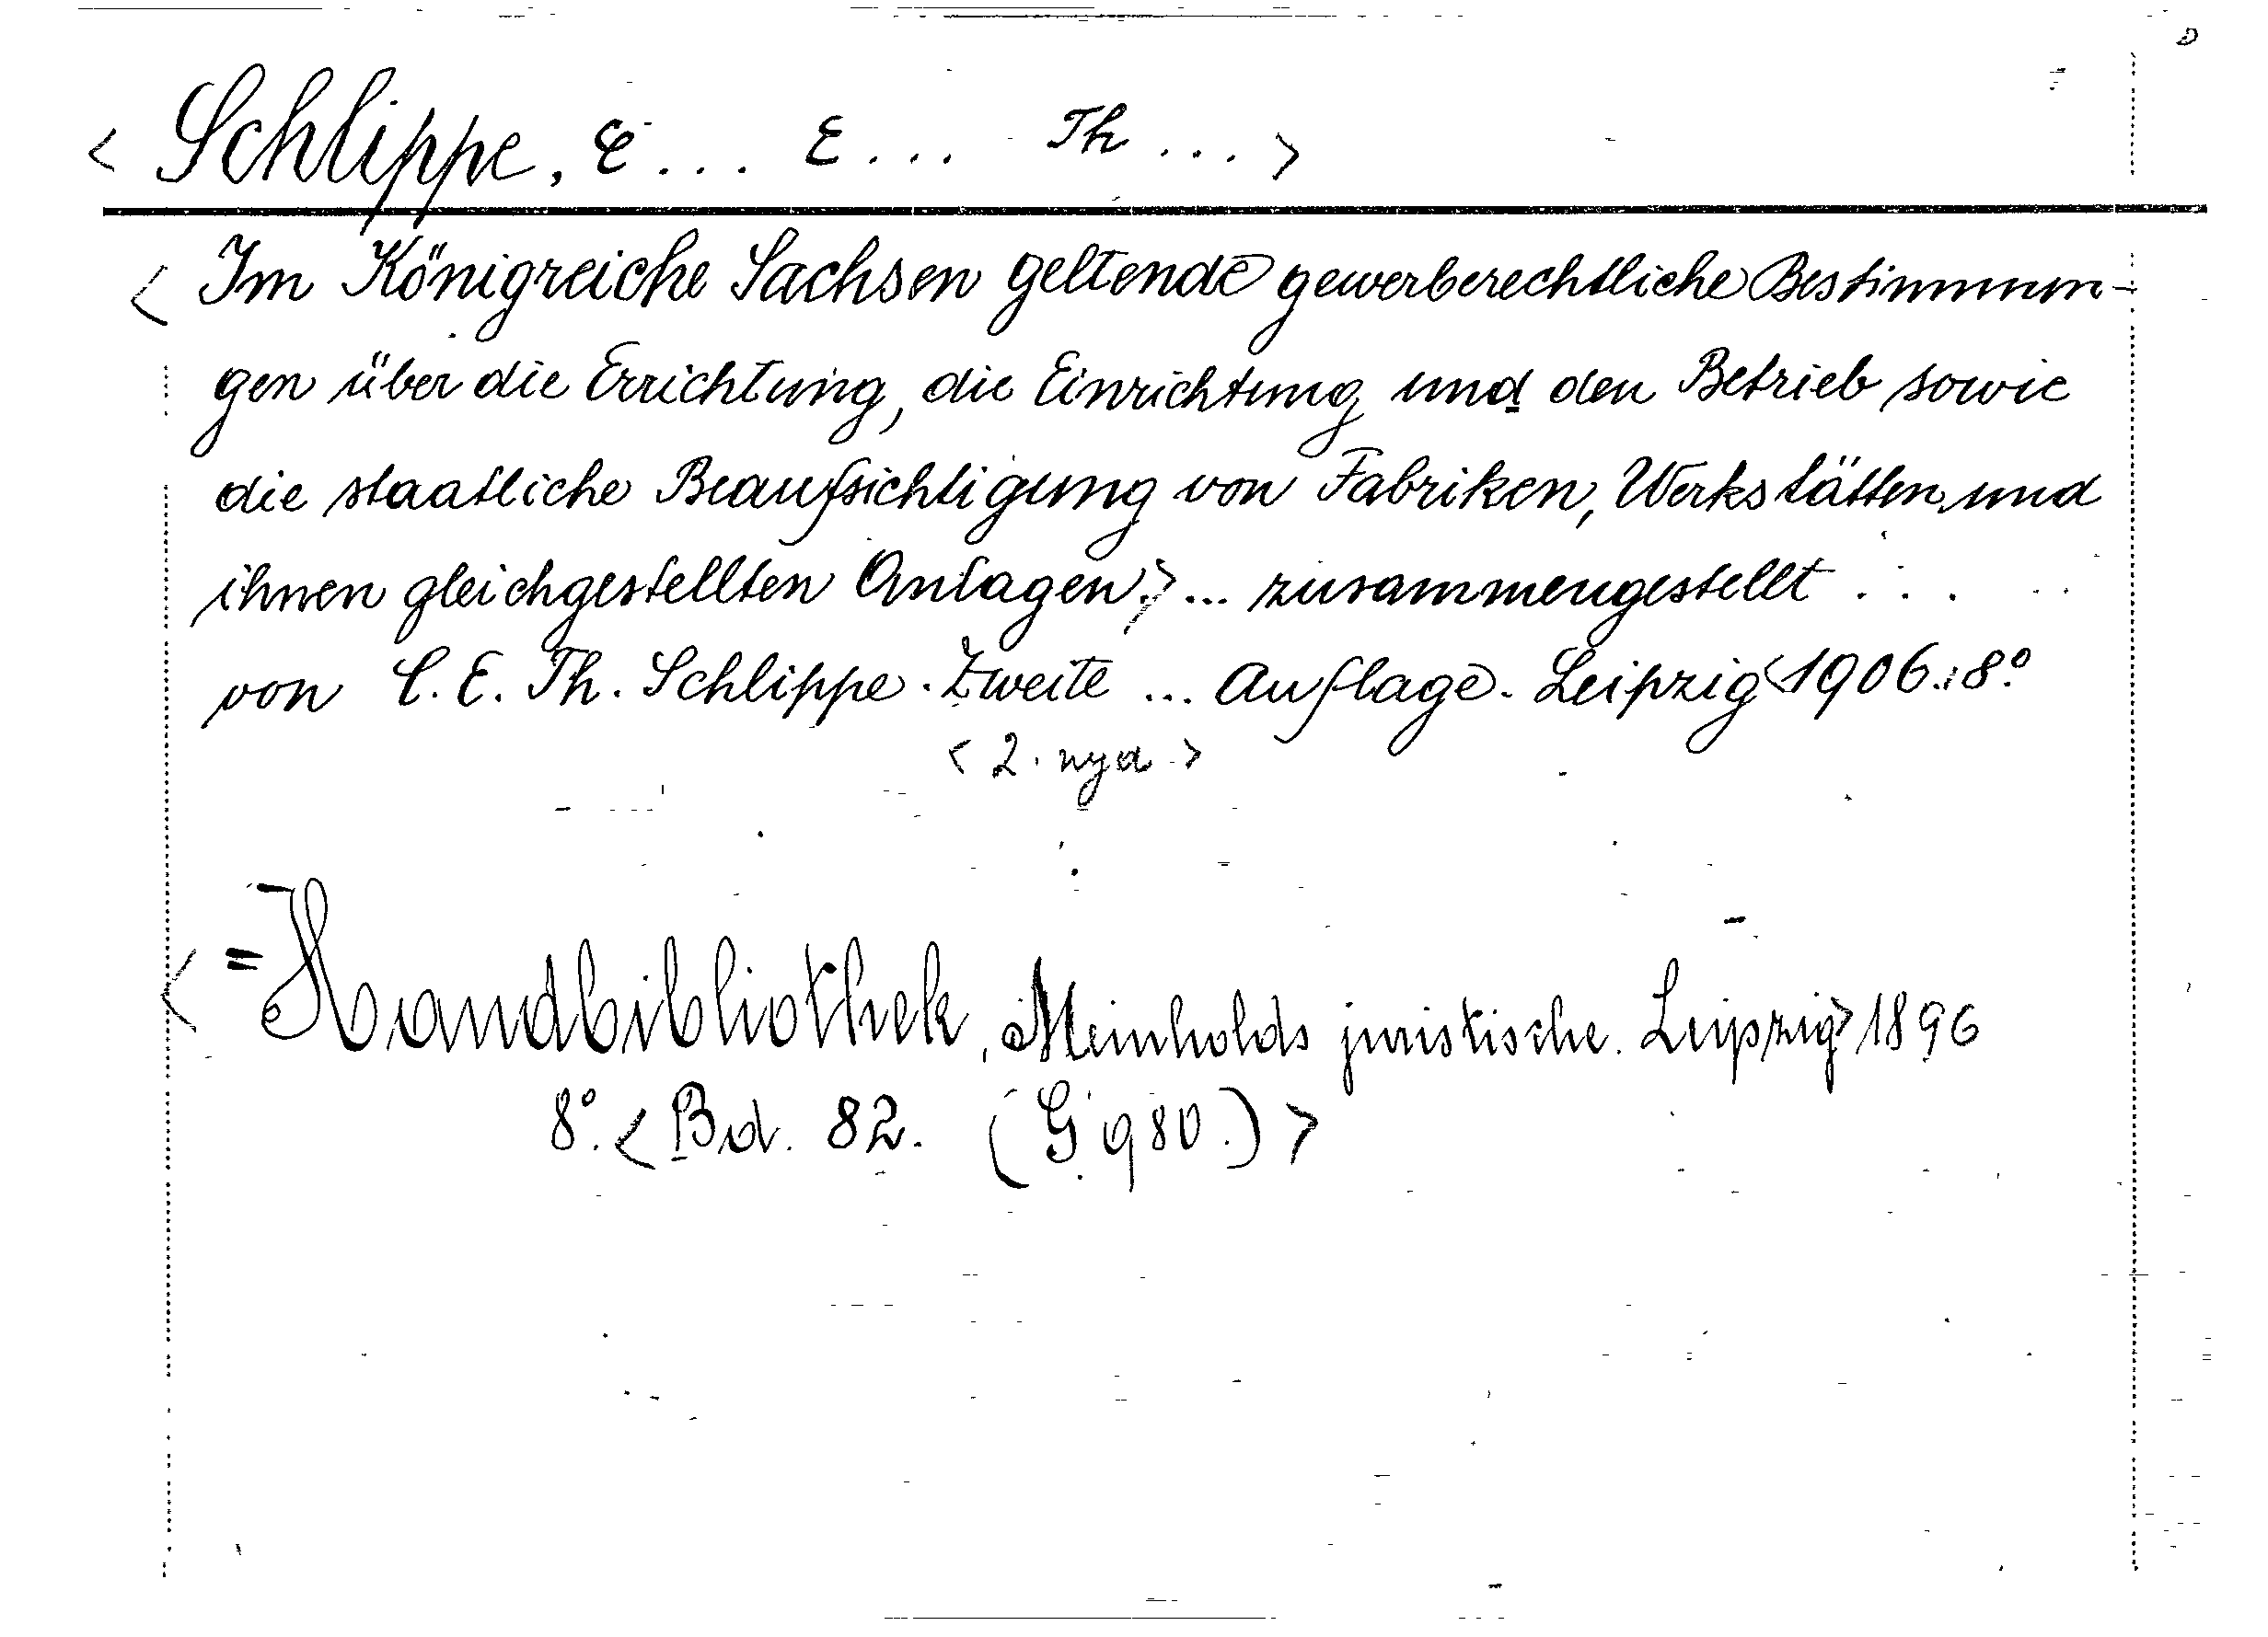 < Schlippe, C... E... Th...>
< Im Königreiche Sachsen geltende gewerberechtliche Bestimmun-
gen über die Errichtung, die Einrichtung und den Betrieb sowie
die staatliche Beaufsichtigung von Fabriken, Werkstätten und
ihnen gleichgestellten Anlagen.>... zusammengestellt ...
von C. E. Th. Schlippe. Zweite ... Auflage. Leipzig <1906.: 8º.
< 2. >
< = Handbibliothek, Meinholds juristische. Leipzig> 1896
8º. < Bd. 82. (G. 980.) >